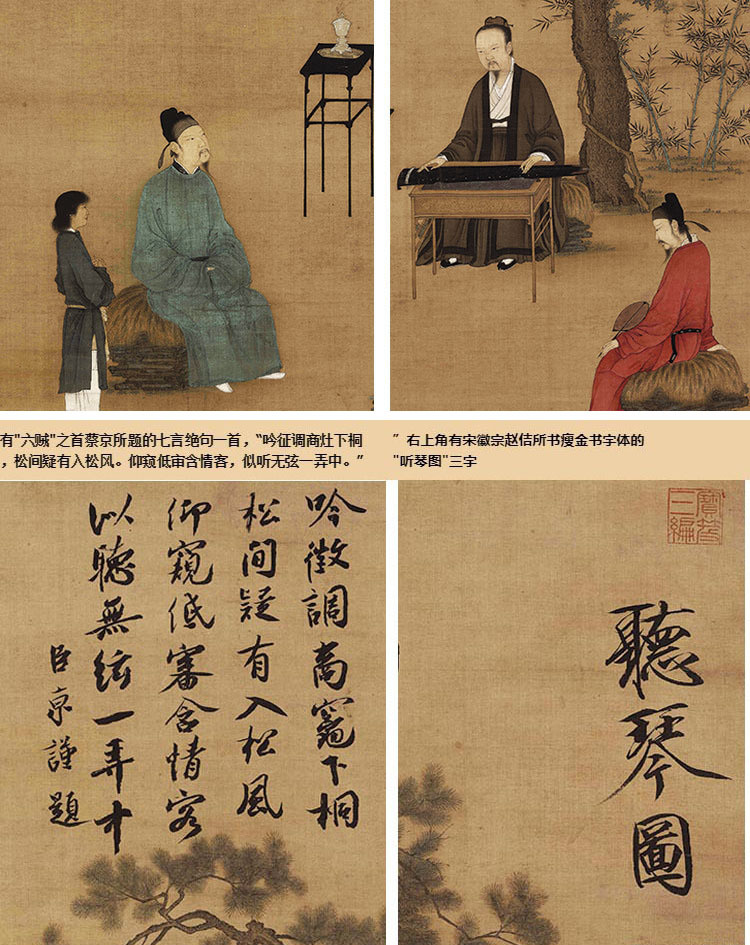 有"六贼"之首蔡京所题的七言绝句一首，“吟征调商灶下桐
，松间疑有入松风。仰窥低审含情客，似听无弦一弄中。”
” 右上角有宋徽宗赵佶所书瘦金书字体的
"听琴图"三字
吟徵調商竈下桐
松間疑有入松風
仰窺低審含情客
似聽無絃一弄中
臣京謹題
寶笈
三編
聽琴圖